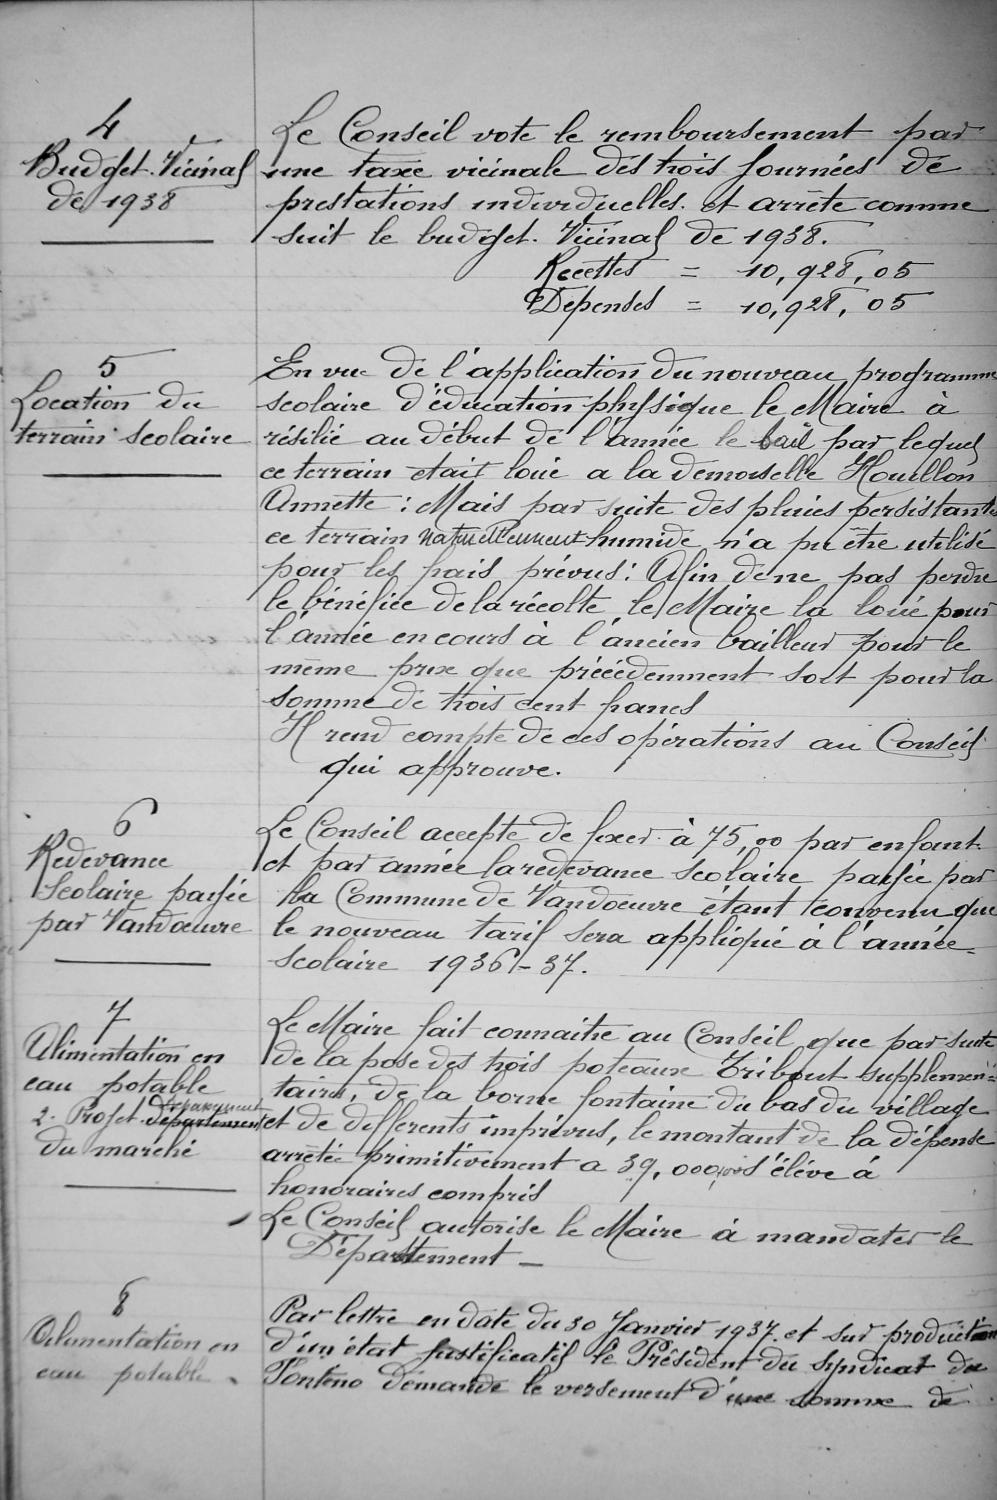 4
Budget Vicinal
de 1938
Le Conseil vote le remboursement par
une taxe vicinale des trois journées de
prestations individuelles. et arrête comme
suit le budget. Vicinal de 1938.
Recettes = 10,928,05
Dépenses = 10,928,05
5
Location du
terrain scolaire
En vue de l'application du nouveau programme
scolaire d'éducation physique le Maire à
résilié au début de l'année le bail par lequel
ce terrain était loué a la demoiselle Houillon
Annette : Mais par suite des pluies persistantes
ce terrain naturellement humide n'a pu être utilisé
pour les frais prévus : Afin de ne pas perdre
le bénéfice de la récolte le Maire la loué pour
l'année en cours à l'ancien bailleur pour le
même prix que précédemment soit pour la
somme de trois cent francs
Il rend compte de ces opérations au Conseil
qui approuve.
6
Redevance
Scolaire payée
par Vandoeuvre
Le Conseil accepte de fixer à 75,00 par enfant
et par année la redevance scolaire payée par
la Commune de Vandoeuvre étant convenu que
le nouveau tarif sera appliqué à l'année
scolaire 1936-37.
7
Alimentation en
eau potable
2e Projet département
du marché
Le Maire fait connaitre au Conseil que par suite
de la pose des trois poteaux Tribout supplémen=
taires, de la borne fontaine du bas du village
et de différents imprévus, le montant de la dépense
arrêtée primitivement a 39,000,00 s'élève à
honoraires compris
Le Conseil autorise le Maire à mandater le
Département _
8
Alimentation en
eau potable
Par lettre en date du 30 Janvier 1937 et sur production
d'un état justificatif le Président du Syndicat de
demande le versement d'une somme de